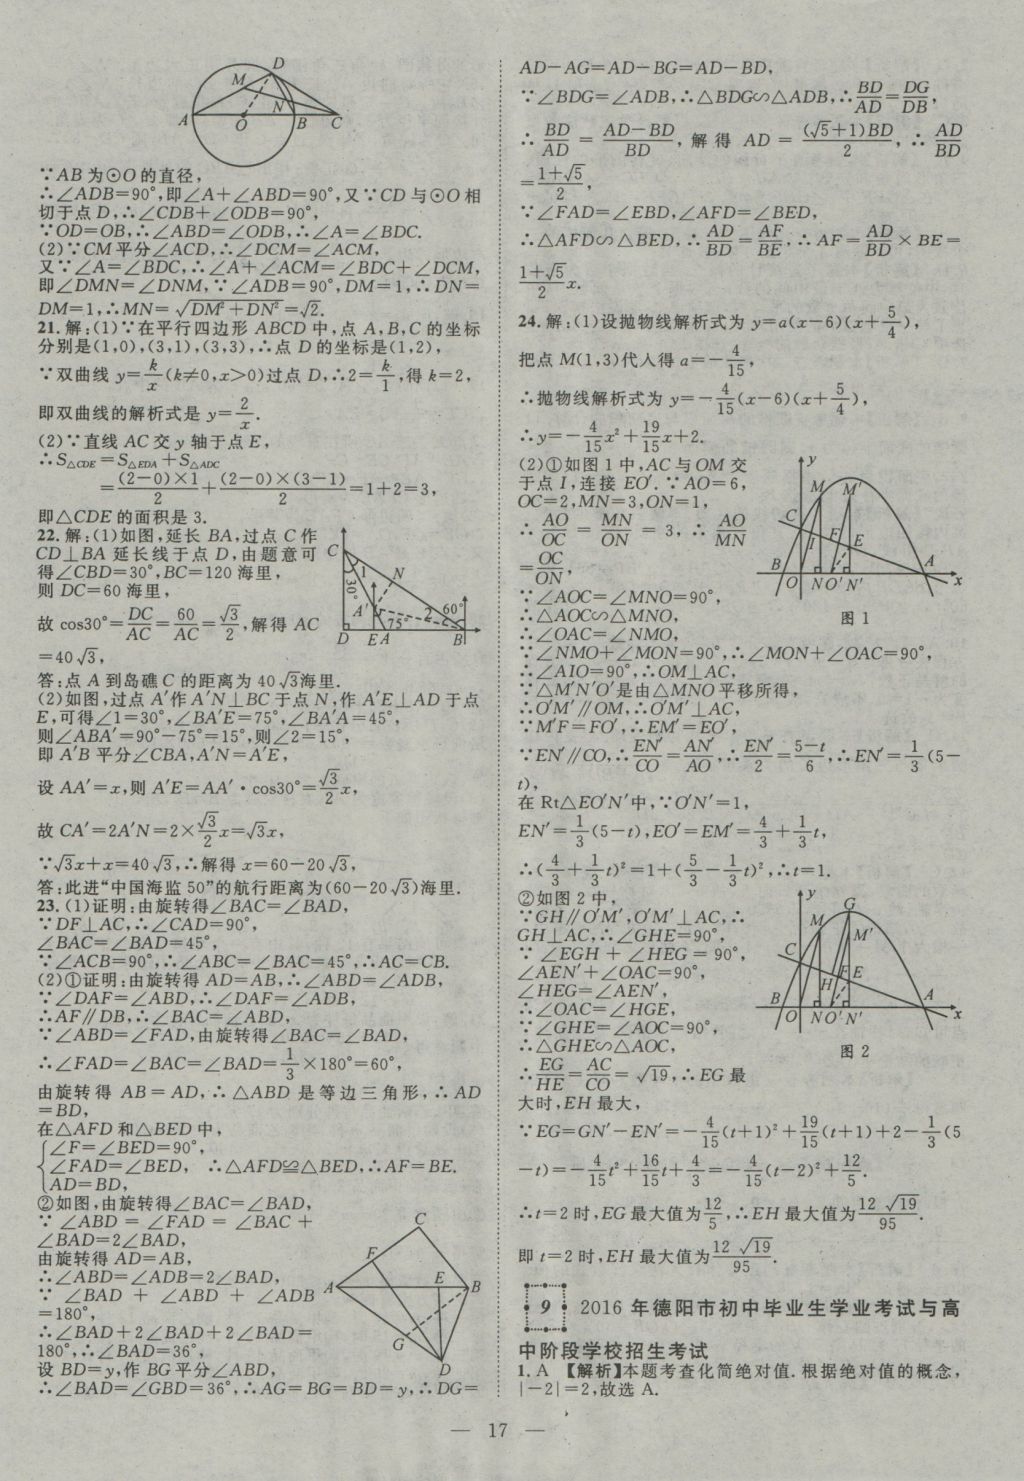 ∵AB为⊙O的直径,
∴∠ADB=90°,即∠A+∠ABD=90°,又∵CD与⊙O相
切于点D,∴∠CDB+∠ODB=90°,
∵OD=OB,∴∠ABD=∠ODB,∴∠A=∠BDC.
(2)∵CM平分∠ACD,∴∠DCM=∠ACM,
又∵∠A=∠BDC,∴∠A+∠ACM=∠BDC+∠DCM,
即∠DMN=∠DNM,∵∠ADB=90°,DM=1,∴DN=
DM=1,∴MN=√(DM²+DN²)=√2.
21.解:(1)∵在平行四边形ABCD中,点A,B,C的坐标
分别是(1,0),(3,1),(3,3),∴点D的坐标是(1,2),
∵双曲线y=k/x(k≠0,x>0)过点D,∴2=k/1,得k=2,
即双曲线的解析式是y=2/x.
(2)∵直线AC交y轴于点E,
∴S△CDE=S△EDA+S△ADC
=(2-0)×1/2+(2-0)×(3-1)/2=1+2=3,
即△CDE的面积是3.
22.解:(1)如图,延长BA,过点C作
CD⊥BA延长线于点D,由题意可
得∠CBD=30°,BC=120海里,
则DC=60海里,
故cos30°=DC/AC=60/AC=√3/2,解得AC
=40√3,
答:点A到岛礁C的距离为40√3海里.
(2)如图,过点A′作A′N⊥BC于点N,作A′E⊥AD于点
E,可得∠1=30°,∠BA′E=75°,∠BA′A=45°,
则∠ABA′=90°-75°=15°,则∠2=15°,
即A′B平分∠CBA,A′N=A′E,
设AA′=x,则A′E=AA′·cos30°=√3/2x,
故CA′=2A′N=2×√3/2x=√3x,
∵√3x+x=40√3,∴解得x=60-20√3,
答:此进“中国海监50”的航行距离为(60-20√3)海里.
23.(1)证明:由旋转得∠BAC=∠BAD,
∵DF⊥AC,∴∠CAD=90°,
∠BAC=∠BAD=45°,
∵∠ACB=90°,∴∠ABC=∠BAC=45°,∴AC=CB.
(2)①证明:由旋转得AD=AB,∴∠ABD=∠ADB,
∵∠DAF=∠ABD,∴∠DAF=∠ADB,
∴AF∥DB,∴∠BAC=∠ABD,
∵∠ABD=∠FAD,由旋转得∠BAC=∠BAD,
∴∠FAD=∠BAC=∠BAD=1/3×180°=60°,
由旋转得AB=AD,∴△ABD是等边三角形,∴AD
=BD,
在△AFD和△BED中,
∠F=∠BED=90°,
∠FAD=∠BED, ∴△AFD≌△BED,∴AF=BE.
AD=BD,
②如图,由旋转得∠BAC=∠BAD,
∵∠ABD=∠FAD=∠BAC+
∠BAD=2∠BAD,
由旋转得AD=AB,
∴∠ABD=∠ADB=2∠BAD,
∵∠BAD+∠ABD+∠ADB
=180°,
∴∠BAD+2∠BAD+2∠BAD=
180°,∴∠BAD=36°,
设BD=y,作BG平分∠ABD,
∴∠BAD=∠GBD=36°,∴AG=BG=BD=y,∴DG=
AD-AG=AD-BG=AD-BD,
∵∠BDG=∠ADB,∴△BDG∽△ADB,∴BD/AD=DG/DB,
∴BD/AD=(AD-BD)/BD,解得AD=(√5+1)BD/2,∴AD/BD
=(1+√5)/2,
∵∠FAD=∠EBD,∠AFD=∠BED,
∴△AFD∽△BED,∴AD/BD=AF/BE,∴AF=AD/BD×BE=
(1+√5)/2x.
24.解:(1)设抛物线解析式为y=a(x-6)(x+5/4),
把点M(1,3)代人得a=-4/15,
∴抛物线解析式为y=-4/15(x-6)(x+5/4),
∴y=-4/15x²+19/15x+2.
(2)①如图1中,AC与OM交
于点I,连接EO′.∵AO=6,
OC=2,MN=3,ON=1,
∴AO/OC=MN/ON=3,∴AO/MN
=OC/ON,
∵∠AOC=∠MNO=90°,
∴△AOC∽△MNO,
∴∠OAC=∠NMO,
∵∠NMO+∠MON=90°,∴∠MON+∠OAC=90°,
∴∠AIO=90°,∴OM⊥AC,
∵△M′N′O′是由△MNO平移所得,
∴O′M′∥OM,∴O′M′⊥AC,
∵M′F=FO′,∴EM′=EO′,
∵EN′∥CO,∴EN′/CO=AN′/AO,∴EN′/2=(5-t)/6,∴EN′=1/3(5-
t),
在Rt△EO′N′中,∵O′N′=1,
EN′=1/3(5-t),EO′=EM′=4/3+1/3t,
∴(4/3+1/3t)²=1+(5/3-1/3t)²,∴t=1.
②如图2中,
∵GH∥O′M′,O′M′⊥AC,∴
GH⊥AC,∴∠GHE=90°,
∵∠EGH+∠HEG=90°,
∠AEN′+∠OAC=90°,
∠HEG=∠AEN′,
∴∠OAC=∠HGE,
∵∠GHE=∠AOC=90°,
∴△GHE∽△AOC,
∴EG/HE=AC/CO=√19,∴EG最
大时,EH最大,
∵EG=GN′-EN′=-4/15(t+1)²+19/15(t+1)+2-1/3(5
-t)=-4/15t²+16/15t+4/3=-4/15(t-2)²+12/5.
∴t=2时,EG最大值为12/5,∴EH最大值为12√19/95.
即t=2时,EH最大值为12√19/95.
图1
图2
9 2016年德阳市初中毕业生学业考试与高
中阶段学校招生考试
1.A 【解析】本题考查化简绝对值.根据绝对值的概念,
|-2|=2,故选A.
— 17 —